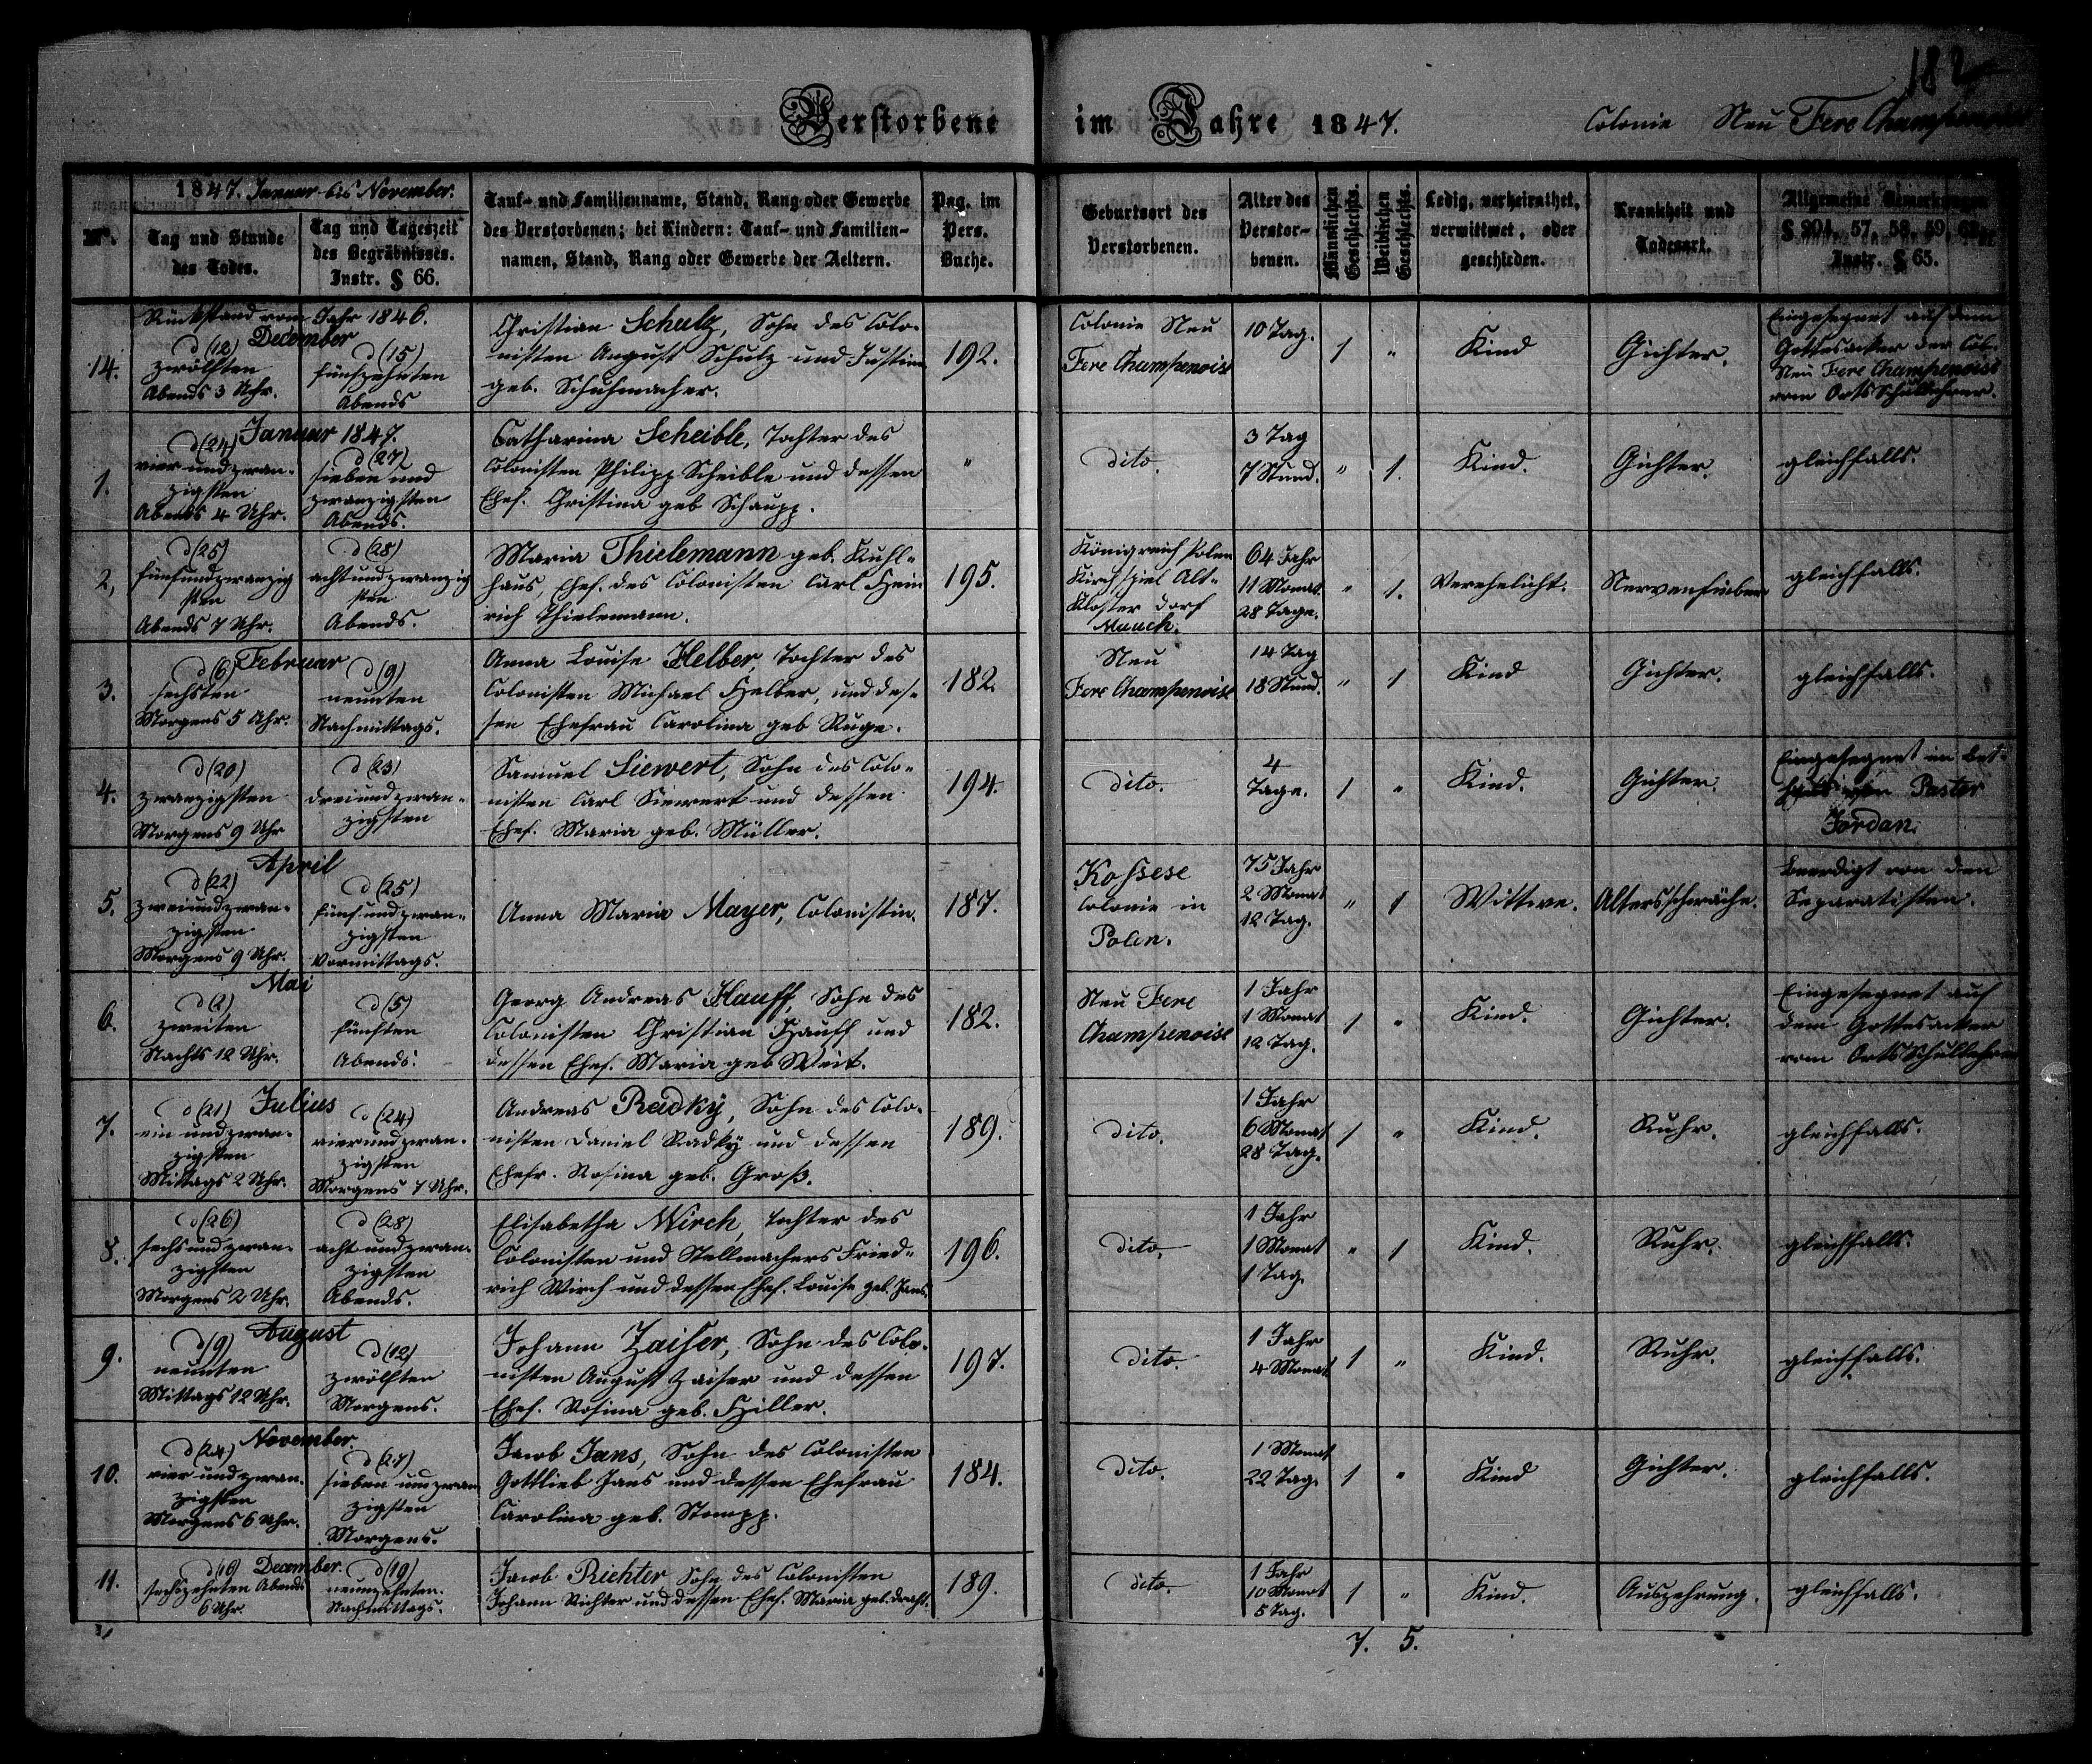 182
Verstorbene im Jahre 1847.
Colonie Neu Fere Champenoise
1847. Januar bis November.
No.
Tag und Stunde
des Todes.
Tag und Tageszeit
des Begräbnisses.
Instr. § 66.
Tauf- und Familienname, Stand, Rang oder Gewerbe
des Verstorbenen; bei Kindern: Tauf- und Familien-
namen, Stand, Rang oder Gewerbe der Aeltern.
Pag. im
Pers.
Buche.
Geburtsort des
Verstorbenen.
Alter des
Verstor-
benen.
Männlichen
Geschlechts.
Weiblichen
Geschlechts.
Ledig, verheirathet,
verwittwet, oder
geschieden.
Krankheit und
Todesart.
Allgemeine Bemerkungen
§ 204. 57. 58. 59.
Instr. § 65.
Rückstand vom Jahr 1846.
December
14.
d (12)
zwölften
Abends 3 Uhr.
d (15)
fünfzehnten
Abends
Christian Schulz, Sohn des Colo-
nisten August Schulz und Justina
geb. Schuhmacher.
192.
Colonie Neu
Fere Champenoise
10 Tag.
1
"
Kind
Gichter.
Eingesegnet auf dem
Gottesacker der Col.
Neu Fere Champenoise
vom Orts Schullehrer.
Januar 1847.
1.
d (24)
vier und zwan-
zigsten
Abends 4 Uhr.
d (27)
sieben und
zwanzigsten
Abends.
Catharina Scheible, Tochter des
Colonisten Philipp Scheible und dessen
Ehef. Christina geb Schaupp.
"
dito.
3 Tag
7 Stund.
"
1.
Kind.
Gichter.
gleichfalls.
2,
d (25)
fünfundzwanzig
sten
Abends 7 Uhr.
d (28)
achtundzwanzig
sten
Abends.
Maria Thielemann geb. Kuhl-
haus, Ehef. des Colonisten Carl Hein
rich Thielemann.
195.
Königreich Polen
Kirchspiel Alt-
Kloster Dorf
Mauch.
64 Jahr
11 Monat
28 Tage.
"
1.
Verehelicht.
Nervenfieber
gleichfalls.
Februar
3.
d (6)
sechsten
Morgens 5 Uhr.
d (9)
neunten
Nachmittags.
Anna Louise Helber, Tochter des
Colonisten Michael Helber, und des-
sen Ehefrau Carolina geb Ruge.
182.
Neu
Fere Champenoise
14 Tag
18 Stund.
"
1
Kind
Gichter.
gleichfalls.
4.
d (20)
zwanzigsten
Morgens 9 Uhr
d (23)
dreiundzwan-
zigsten
Samuel Siewert, Sohn des Colo-
nisten Carl Siewert und dessen
Ehef. Maria geb. Müller.
194.
dito.
4
Tage.
1
"
Kind.
Gichter.
Eingesegnet im Bet-
haus von Pastor
Jordan.
April
5.
d (22)
zweiundzwan-
zigsten
Morgens 9 Uhr.
d (25)
fünfundzwan-
zigsten
Vormittags.
Anna Maria Mayer, Colonistin.
187.
Kossese
Colonie in
Polen.
75 Jahr
2 Monat
12 Tag.
"
1
Wittwe.
Altersschwäche.
Beerdigt von den
Separatisten.
Mai
6.
d (2)
zweiten
Nachts 12 Uhr.
d (5)
fünften
Abends.
Georg Andreas Hauff, Sohn des
Colonisten Christian Hauff und
dessen Ehef. Maria geb Weit.
182.
Neu Fere
Champenoise
1 Jahr
1 Monat
12 Tag.
1
"
Kind.
Gichter.
Eingesegnet auf
dem Gottesacker
vom Orts Schullehrer
Julius
7.
d (21)
ein und zwan-
zigsten
Mittags 2 Uhr.
d (24)
vierundzwan-
zigsten
Morgens 7 Uhr.
Andreas Radky, Sohn des Colo-
nisten Daniel Radky und dessen
Ehefr. Rosina geb. Groß.
189.
dito.
1 Jahr
6 Monat
28 Tag.
1
"
Kind.
Ruhr.
gleichfalls.
8.
d (26)
sechs und zwan-
zigsten
Morgens 2 Uhr.
d (28)
acht und zwan-
zigsten
Abends.
Elisabetha Wirch, Tochter des
Colonisten und Stellmachers Fried-
rich Wirch und dessen Ehef. Louise geb. Jans.
196.
dito.
1 Jahr
1 Monat
1 Tag.
"
1
Kind.
Ruhr.
gleichfalls.
August
9.
d (9)
neunten
Mittags 12 Uhr.
d (12)
zwölften
Morgens.
Johann Zaiser, Sohn des Colo-
nisten August Zaiser und dessen
Ehef. Rosina geb. Hiller.
197.
dito.
1 Jahr
4 Monat
1
"
Kind.
Ruhr.
gleichfalls.
November
10.
d (24)
vier und zwan-
zigsten
Morgens 6 Uhr.
d (27)
sieben und zwan
zigsten
Morgens.
Jacob Jans, Sohn des Colonisten
Gottlieb Jans und dessen Ehefrau
Carolina geb. Stampp.
184.
dito.
1 Monat
22 Tage
1
"
Kind
Gichter.
gleichfalls.
December.
11.
d (16)
sechszehnten Abends
6 Uhr.
d (19)
neunzehnten.
Nachmittags.
Jacob Richter Sohn des Colonisten
Johann Richter und dessen Ehef. Maria geb. Draht.
189.
dito.
1 Jahr
10 Monat
5 Tag.
1
"
Kind.
Auszehrung.
gleichfalls.
7. 5.